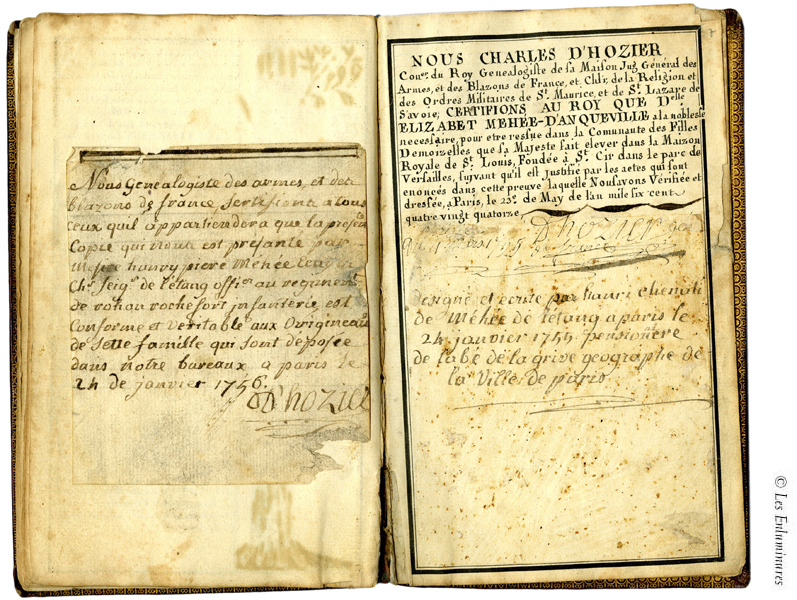 Nous Genealogiste des armes, et des
blazons de france, Sertifions a tous
ceux quil appartiendora que la presente
Copie qui nous est présante par
Messire hanry piere Méhée Ecuyer
Chr. Seigr. de létang offier au regiment
de rohan rochefort jnfanterie, est
Conforme et veritable aux Origineaux
de Sette famille qui sont déposée
dans notre bureaux a paris le
24 de janvier 1756.
D'hozier
NOUS CHARLES D'HOZIER
Coner. du Roy Genealogiste de sa Maison Jug General des
Armes, et des Blazons de France, et Chlr. de la Religion et
des Ordres Militaires de St. Maurice, et de St. Lazare de
Savoie; CERTIFIONS AU ROY QUE Delle
ELIZABET MEHÉE-D'ANQUEVILLE a la noblesse
necessaire, pour etre resue dans la Comunaute des Filles
Demoizelles que sa Majeste fait elever dans la Maizon
Royale de St. Louis, Fondée à St. Cir dans le parc de
Versailles, suivant qu'il est justifié par les actes qui sont
enoncés dans cette preuve laquelle Nous avons Vérifiée et
dressée, a Paris, le 25e. de May de l'an mile six cent
quatre vingt quatorze
D'hozier
désigné et écrite par hanri
de Méhée de létang a paris le
24 janvier 1755 pensionere
de labé de la grive geographe de
la Ville de paris
© Les Enluminures